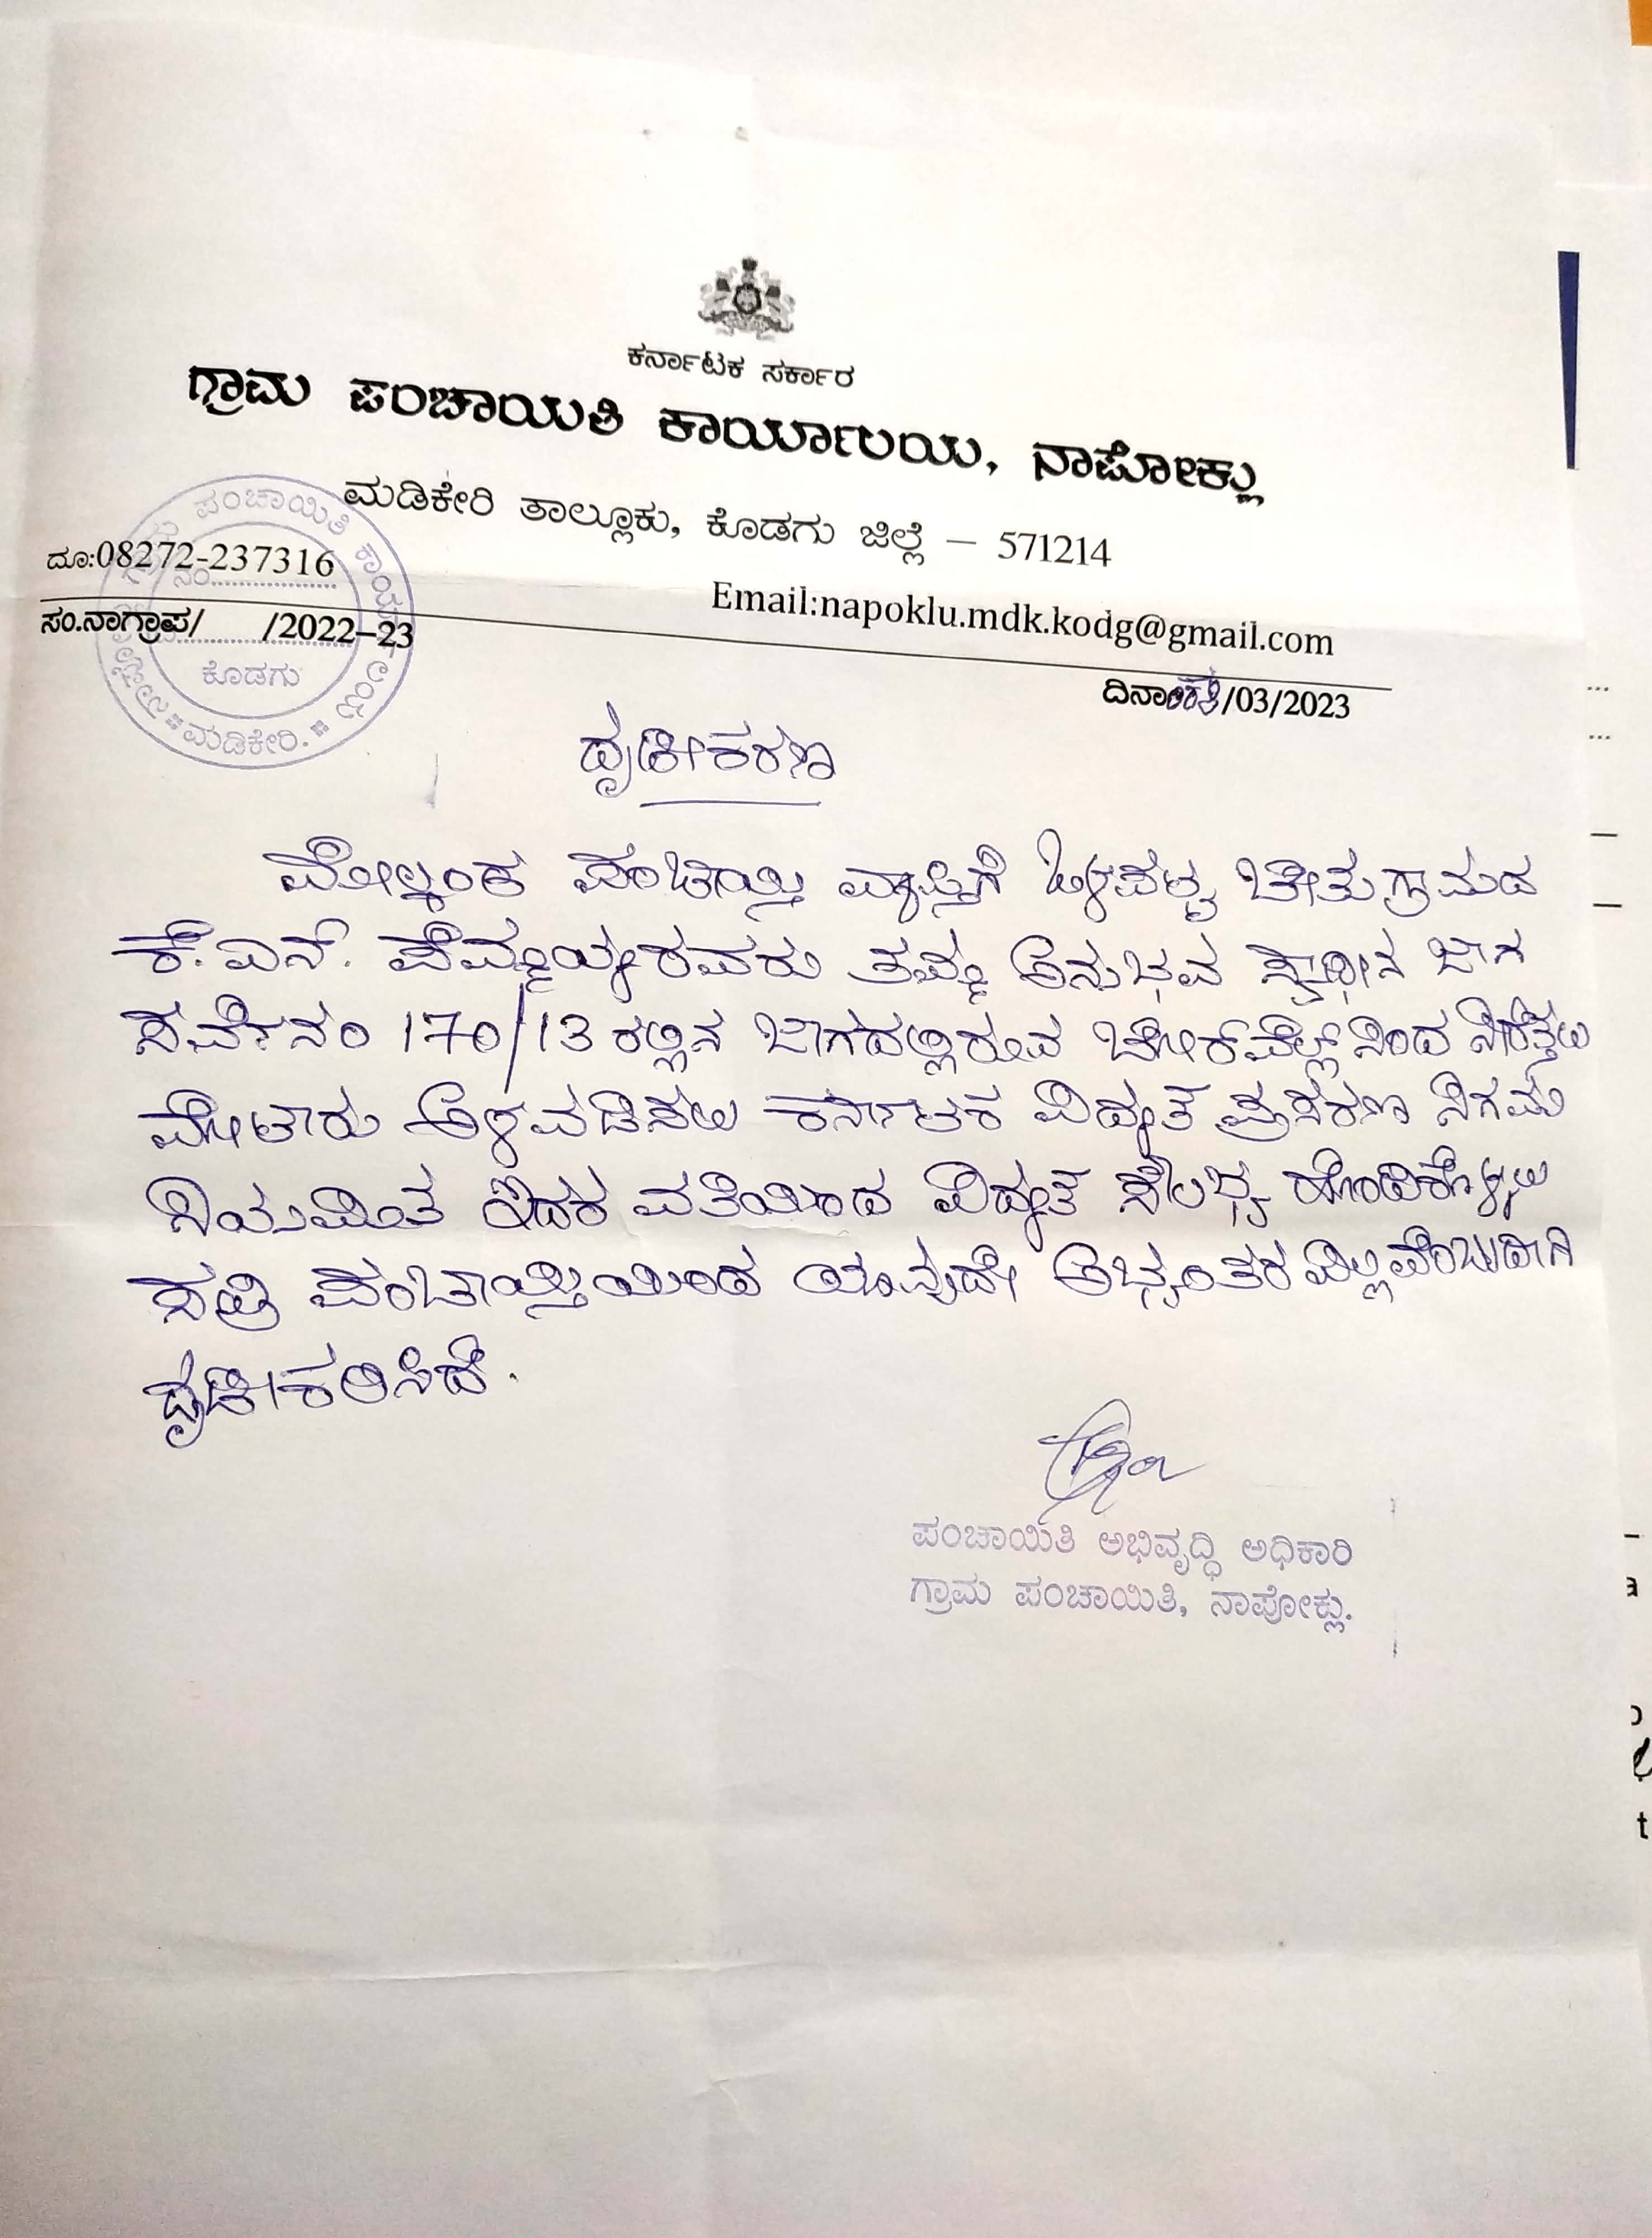 ಕರ್ನಾಟಕ ಸರ್ಕಾರ
ಗ್ರಾಮ ಪಂಚಾಯಿತಿ ಕಾರ್ಯಾಲಯ, ನಾಪೋಕ್ಲು
ಮಡಿಕೇರಿ ತಾಲ್ಲೂಕು, ಕೊಡಗು ಜಿಲ್ಲೆ – 571214
ದೂ:08272-237316
Email:napoklu.mdk.kodg@gmail.com
ಸಂ.ನಾಗ್ರಾಪ/ /2022–23
ಪಂಚಾಯಿತಿ
ನಂ
ಕೊಡಗು
ಮಡಿಕೇರಿ.
/03/2023
ದೃಢೀಕರಣ
ಮೇಲ್ಕಂಡ ಪಂಚಾಯ್ತಿ ವ್ಯಾಪ್ತಿಗೆ ಒಳಪಟ್ಟ ಬೇತು ಗ್ರಾಮದ
ಕೆ.ಎನ್. ಪೆಮ್ಮಯ್ಯರವರು ತಮ್ಮ ಅನುಭವ ಸ್ವಾಧೀನ ಜಾಗ
ಸರ್ವೆ ನಂ 170/13 ರಲ್ಲಿನ ಜಾಗದಲ್ಲಿರುವ ಬೋರ್‌ವೆಲ್ಲ್ ನಿಂದ ನೀರೆತ್ತಲು
ಮೋಟಾರು ಅಳವಡಿಸಲು ಕರ್ನಾಟಕ ವಿದ್ಯುತ್ ಪ್ರಸರಣ ನಿಗಮ
ನಿಯಮಿತ ಇದರ ವತಿಯಿಂದ ವಿದ್ಯುತ್ ಸೌಲಭ್ಯ ಹೊಂದಿಕೊಳ್ಳಲು
ಸದ್ರಿ ಪಂಚಾಯ್ತಿಯಿಂದ ಯಾವುದೇ ಅಭ್ಯಂತರವಿಲ್ಲವೆಂಬುದಾಗಿ
ದೃಢೀಕರಿಸಿದೆ.
ಪಂಚಾಯಿತಿ ಅಭಿವೃದ್ಧಿ ಅಧಿಕಾರಿ
ಗ್ರಾಮ ಪಂಚಾಯಿತಿ, ನಾಪೋಕ್ಲು.